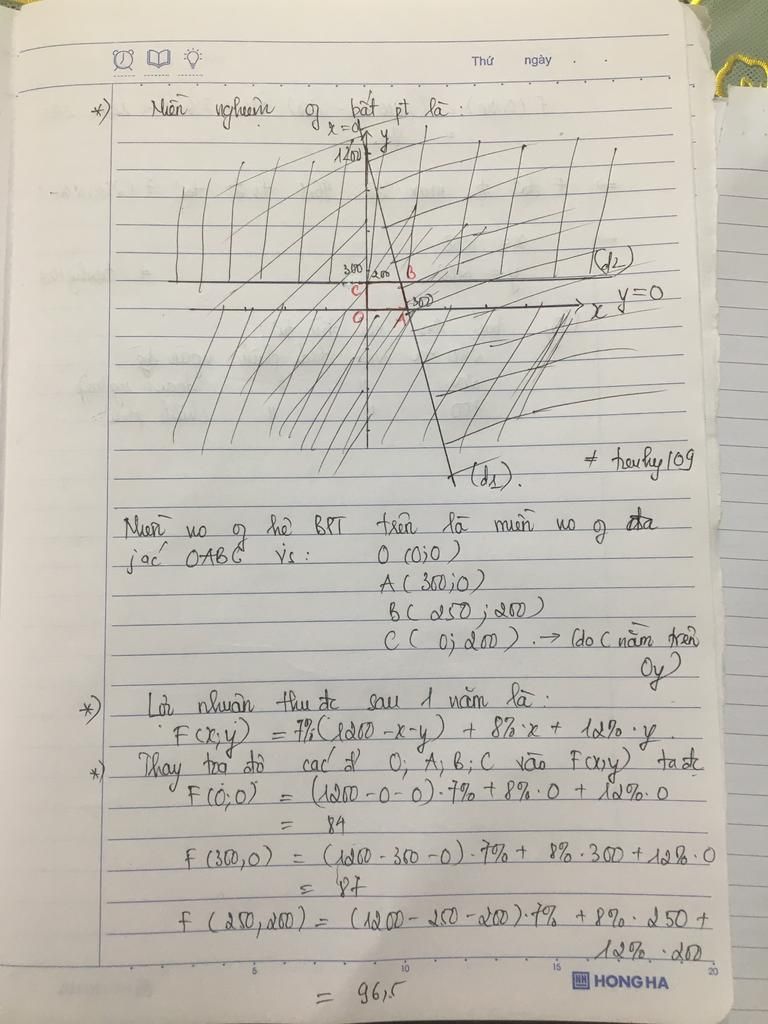 Thứ ngày . .
*) Miền nghiệm of bất pt là:
x=0 y
1200
300 200 B (d2)
C 300 x y=0
O A
≠ trenhy109
(d1).
Miền no of hệ BPT trên là miền no of đa
giác OABC vs: O (0;0)
A (300;0)
B (250;200)
C (0;200). → (do C nằm trên
Oy)
*) Lợi nhuận thu đc sau 1 năm là:
F(x;y) = 7%(1200-x-y) + 8%·x + 12%·y
*) Thay toạ độ các đ O; A; B; C vào F(x,y) ta đc
F(0;0) = (1200-0-0)·7% + 8%·0 + 12%·0
= 84
F(300,0) = (1200-300-0)·7% + 8%·300 + 12%·0
= 87
F (250,200) = (1200-250-200)·7% + 8%·250 +
12%·200
5 10 15 20
HH HONG HA
= 96,5